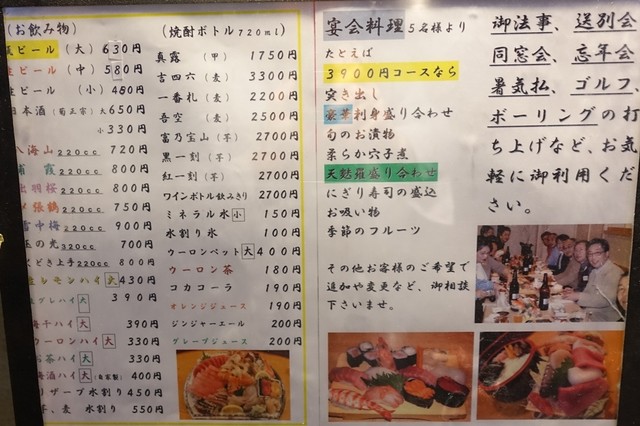 (お飲み物)
ビール (大) 630円
ビール (中) 580円
ビール (小) 450円
日本酒 (菊正宗) 大650円
小330円
八海山 220cc 720円
浦霞 220cc 800円
出羽桜 220cc 800円
〆張鶴 220cc 750円
雪中梅 220cc 900円
玉の光 220cc 700円
上手 220cc 800円
生レモンハイ 大 430円
グレハイ 大 390円
梅干ハイ 大 390円
ウーロンハイ 大 330円
お茶ハイ 大 330円
梅酒ハイ 大 (自家製) 400円
リザーブ水割り 450円
芋、麦 水割り 550円
(焼酎ボトル 720ml)
真露 (甲) 1750円
吉四六 (麦) 3300円
一番札 (麦) 2200円
吾空 (麦) 2500円
富乃宝山 (芋) 2700円
黒一刻 (芋) 2700円
紅一刻 (芋) 2700円
ワインボトル飲みきり 2700円
ミネラル水 小 150円
水割り氷 100円
ウーロンペット 大 400円
ウーロン茶 180円
コカコーラ 190円
オレンジジュース 190円
ジンジャーエール 200円
グレープジュース 200円
宴会料理 5名様より
たとえば
3900円コースなら
突き出し
豪華刺身盛り合わせ
旬のお漬物
柔らか穴子煮
天麩羅盛り合わせ
にぎり寿司の盛込
お吸い物
季節のフルーツ
その他お客様のご希望で
追加や変更など、御相談
下さいませ。
御法事、送別会
同窓会、忘年会
暑気払、ゴルフ、
ボーリングの打
ち上げなど、お気
軽に御利用くだ
さい。